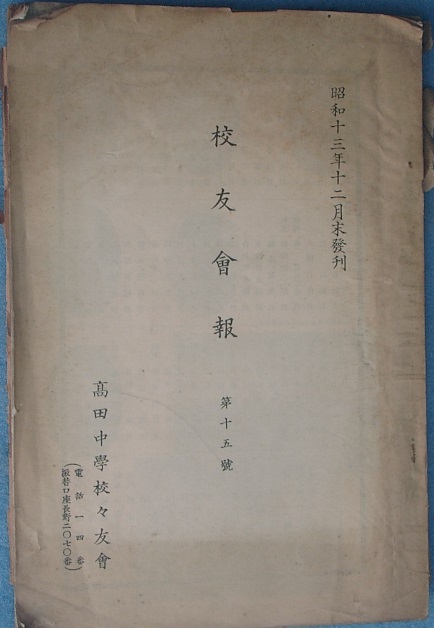 昭和十三年十二月末發刊
校友會報
第十五號
髙田中學校々友會
(電話一四番)
(振替口座長野二〇七〇番)